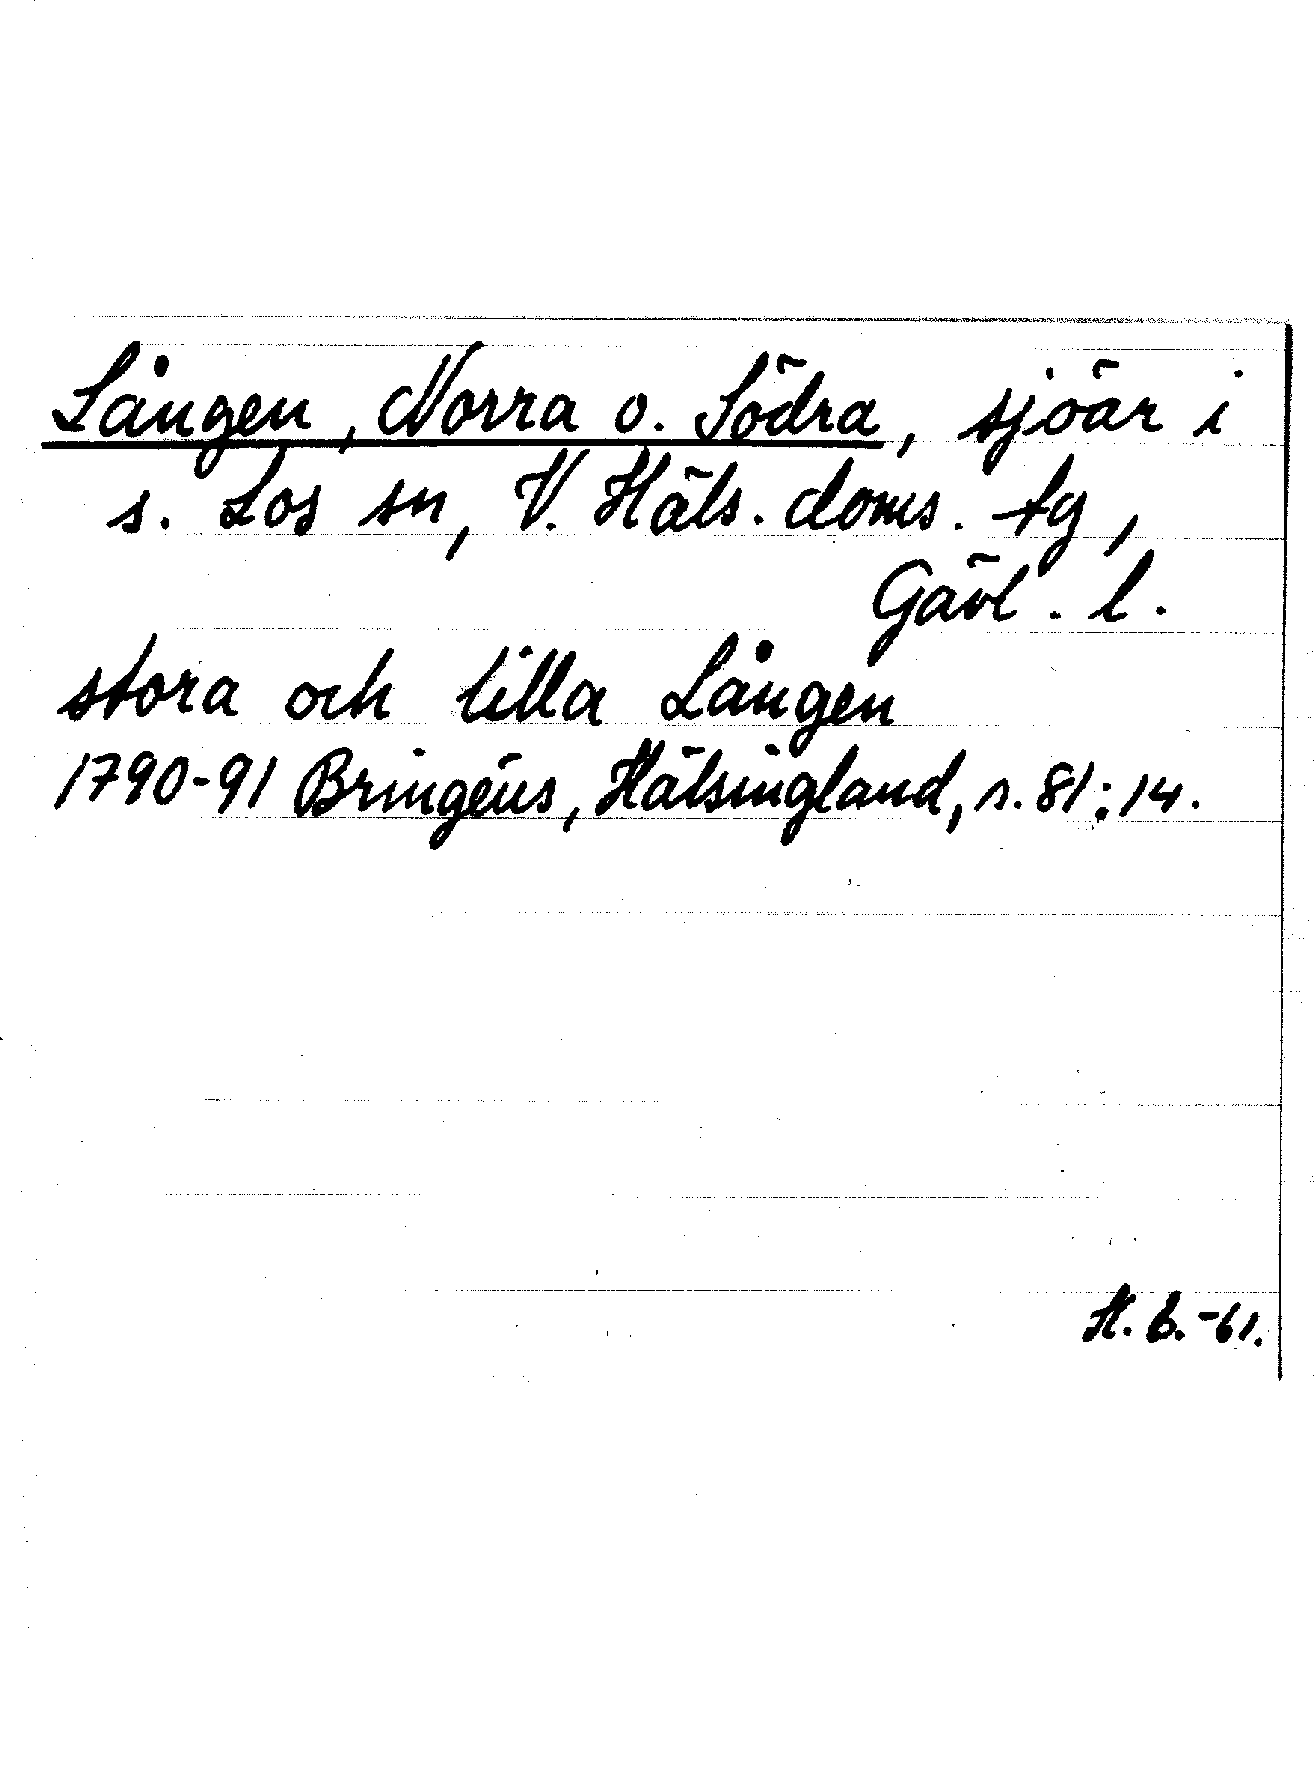 Lången, Norra o. Södra, sjöar i
s. Los sn, V. Häls. doms. tg,
Gävl. l.
stora och lilla Lången
1790-91 Bringéus, Hälsingland, s. 81:14.
H. B. -61.